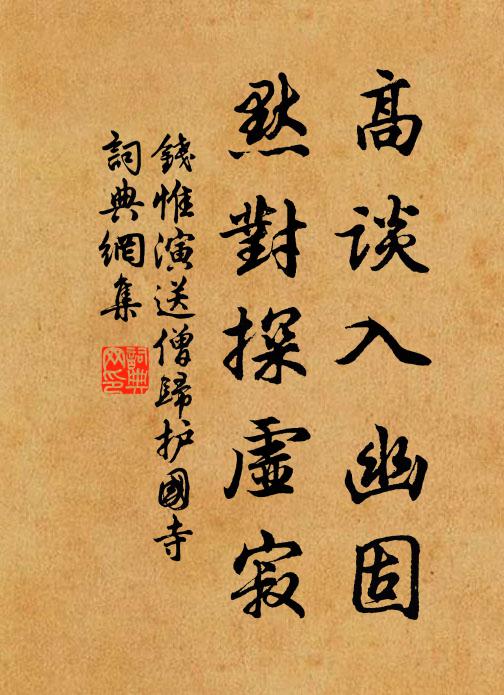 高谈入幽固
默對探虛寂
錢惟演送僧歸护國寺
詞典網集
詞典
网印